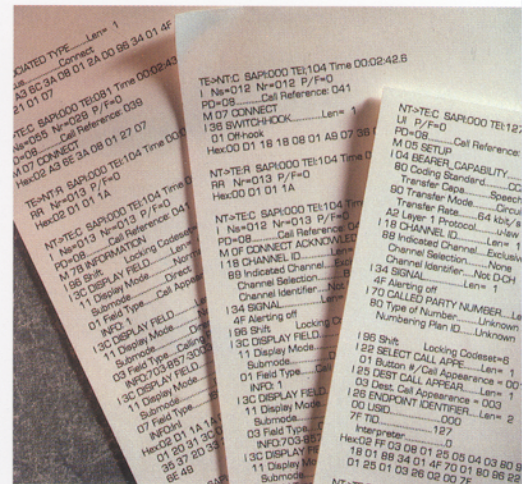 OCIATED TYPE........Len= 1
Connect
A3 6C 3A 08 01 2A 00 96 34 01 4F
21 01 07
TE:C SAPI:000 TEI:081 Time 00:02:43
Ns=055 Nr=028 P/F=0
D=08............Call Reference: 039
M 07 CONNECT
Hex:02 A3 6E 3A 08 01 27 07
TE>NT:R SAPI:000 TEI:104 Time 00:0
RR Nr=013 P/F=0
Hex:02 D1 01 1A
NT>TE:C SAPI:000 TEI:104 Time 0
I Ns=013 Nr=013 P/F=0
PD=08............Call Reference: 041
M 7B INFORMATION
I 96 Shift Locking Codeset
I 3C DISPLAY FIELD........Len=
11 Display Mode........Norma
Submode........Direct
01 Field Type........Call Appear
INFO: 1
I 3C DISPLAY FIELD
11 Display Mode
Submode
03 Field Type....Calling
INFO:703-857-300
I 3C DISPLAY FIELD
11 Display Mode
Submode
07 Field Type
INFO:Inl
Hex:02 D1 1A 1A
01 20 31 30
35 37 2D 33
6E 49
TE>NT:C SAPI:000 TEI:104 Time 00:02:42.6
I Ns=012 Nr=012 P/F=0
PD=08............Call Reference: 041
M 07 CONNECT
I 36 SWITCHHOOK........Len= 1
01 Off-hook
Hex:00 D1 18 18 08 01 A9 07 36
NT>TE:R SAPI:000 TEI:104 Time
RR Nr=013 P/F=0
Hex:00 D1 01 1A
NT>TE:C SAPI:000 TEI:104 Tim
I Ns=012 Nr=013 P/F=0
PD=08............Call Reference: 04
M 0F CONNECT ACKNOWLED
I 18 CHANNEL ID........Len=
89 Indicated Channel....Exc
Channel Selection........B
Channel Identifier....Not
I 34 SIGNAL........Len=
4F Alerting off
I 96 Shift Locking Co
I 3C DISPLAY FIELD
11 Display Mode
Submode
01 Field Type....Ca
INFO: 1
I 3C DISPLAY FIEL
11 Display Mod
Submode
03 Field Type
INFO:703-857
I 3C DISPLAY FI
11 Display M
Submode
NT>TE:C SAPI:000 TEI:127
UI P/F=0
PD=08............Call Reference:
M 05 SETUP
I 04 BEARER_CAPABILITY
80 Coding Standard........CC
Transfer Capa........Speech
90 Transfer Mode........Circu
Transfer Rate........64 kbit/s
A2 Layer 1 Protocol........u-law
I 18 CHANNEL ID........Len= 1
89 Indicated Channel....Exclusiv
Channel Selection........None
Channel Identifier....Not D-CH
I 34 SIGNAL........Len= 1
4F Alerting off
I 70 CALLED PARTY NUMBER....Le
80 Type of Number........Unknown
Numbering Plan ID........Unknown
I 96 Shift Locking Codeset=6
I 22 SELECT CALL APPE....Len= 1
01 Button #/Call Appearence = 00
I 25 DEST CALL APPEAR....Len= 1
03 Dest. Call Appearence = 003
I 26 ENDPOINT IDENTIFIER....Len= 2
00 USID............000
7F TID............127
Interpreter............0
Hex:02 FF 03 08 01 25 05 04 03 80 9
18 01 89 34 01 4F 70 01 80 96 22
01 25 01 03 26 02 00 7F